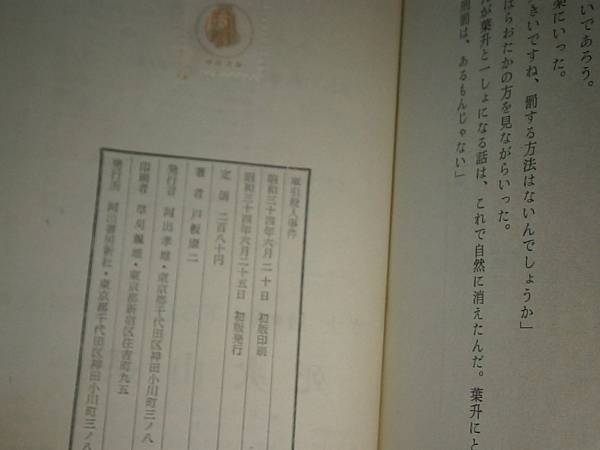 いであろう。
楽にいった。
きいですね、罰する方法はないんでしょうか」
はらおたかの方を見ながらいった。
が葉升と一しょになる話は、これで自然に消えたんだ。葉升にと
刑罰は、あるもんじゃない」
車引殺人事件
昭和三十四年六月二十日 初版印刷
昭和三十四年六月二十五日 初版発行
定価 二百八十円
著者 戸板康二
発行者 河出孝雄・東京都千代田区神田小川町三ノ八
印刷者 草刈親雄・東京都新宿区住吉町九五
発行所 河出書房新社・東京都千代田区神田小川町三ノ八